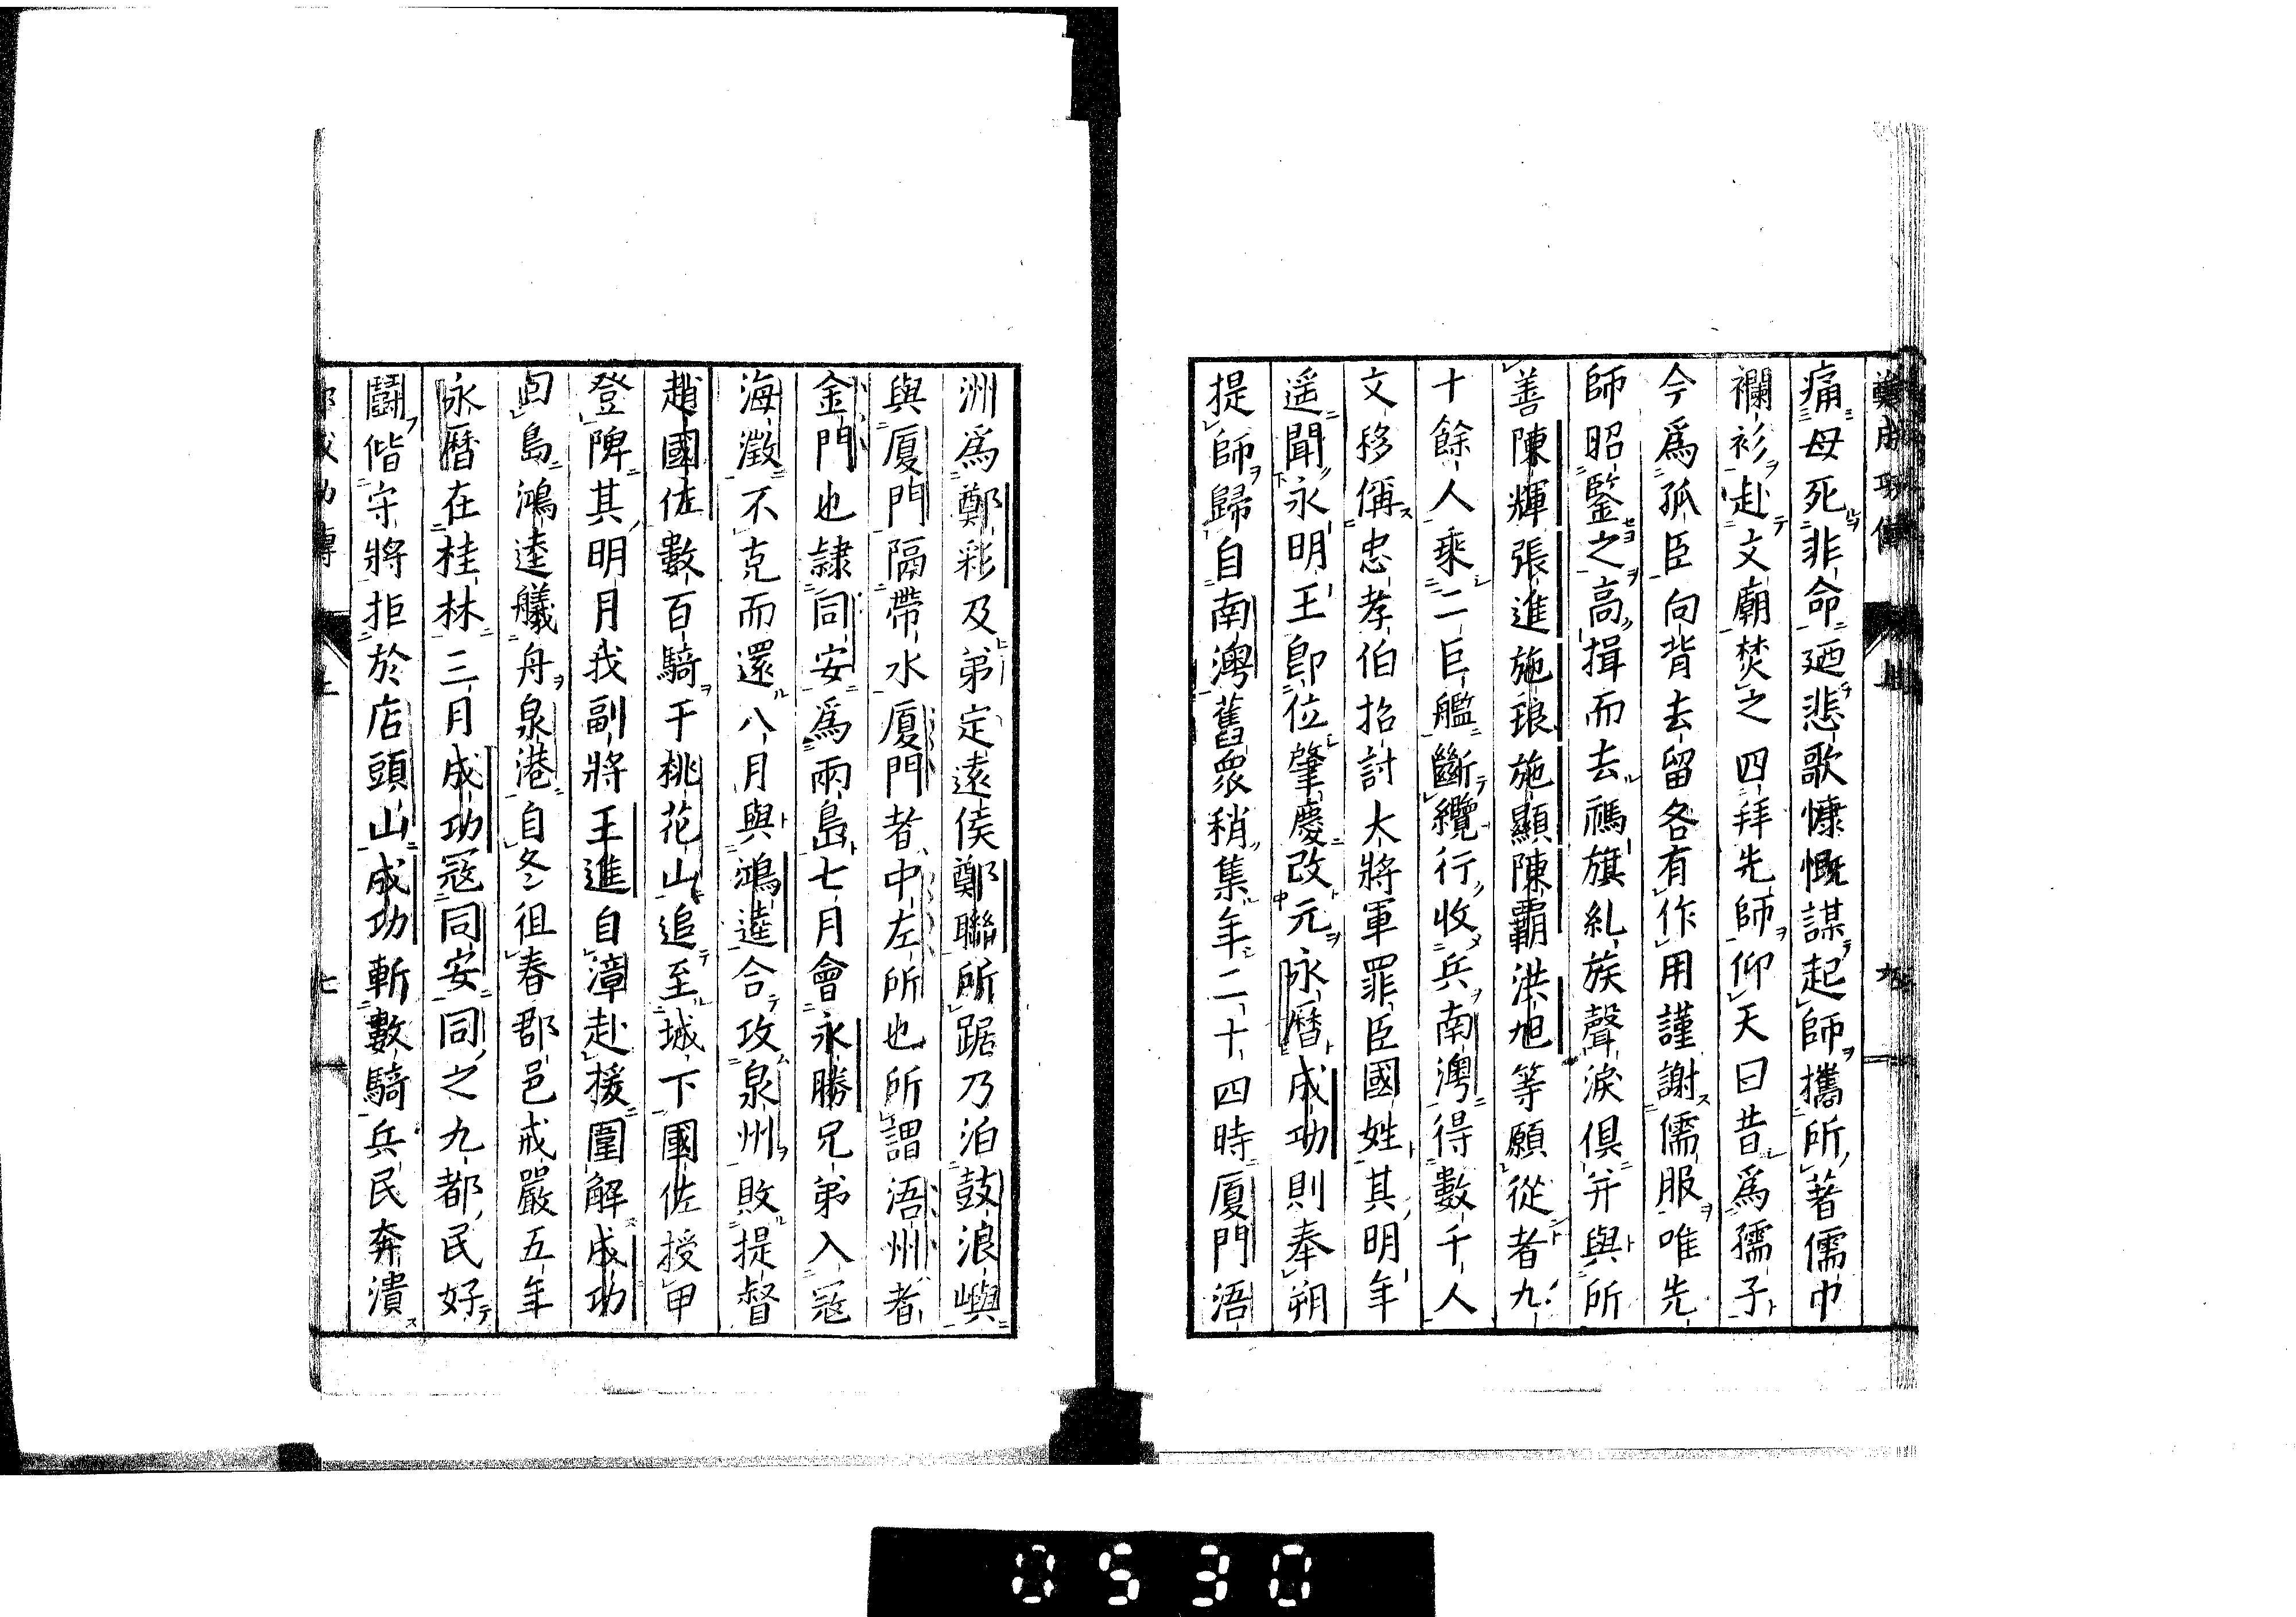 痛母死非命廼悲歌慷慨謀起師攜所著儒巾
襴衫赴文廟焚之四拜先師仰天曰昔爲孺子
今爲孤臣向背去留各有作用謹謝儒服唯先
師昭鑒之高揖而去禡旗糺族聲淚俱并與所
善陳輝張進施琅施顯陳霸洪旭等願從者九
十餘人乘二巨艦斷纜行收兵南澳得數千人
文移偁忠孝伯招討大將軍罪臣國姓其明年
遥聞永明王卽位肇慶改元永曆成功則奉朔
提師歸自南澳舊衆稍集年二十四時厦門浯
洲爲鄭彩及弟定遠侯鄭聯所踞乃泊鼓浪嶼
與厦門隔帶水厦門者中左所也所謂浯州者
金門也隷同安爲兩島七月會永勝兄弟入寇
海澂不克而還八月與鴻逵合攻泉州敗提督
趙國佐數百騎于桃花山追至城下國佐授甲
登陴其明月我副將王進自漳赴援圍解成功
囘島鴻逵艤舟泉港自冬徂春郡邑戒嚴五年
永曆在桂林三月成功寇同安同之九都民好
鬪偕守將拒於店頭山成功斬數騎兵民奔潰
0530